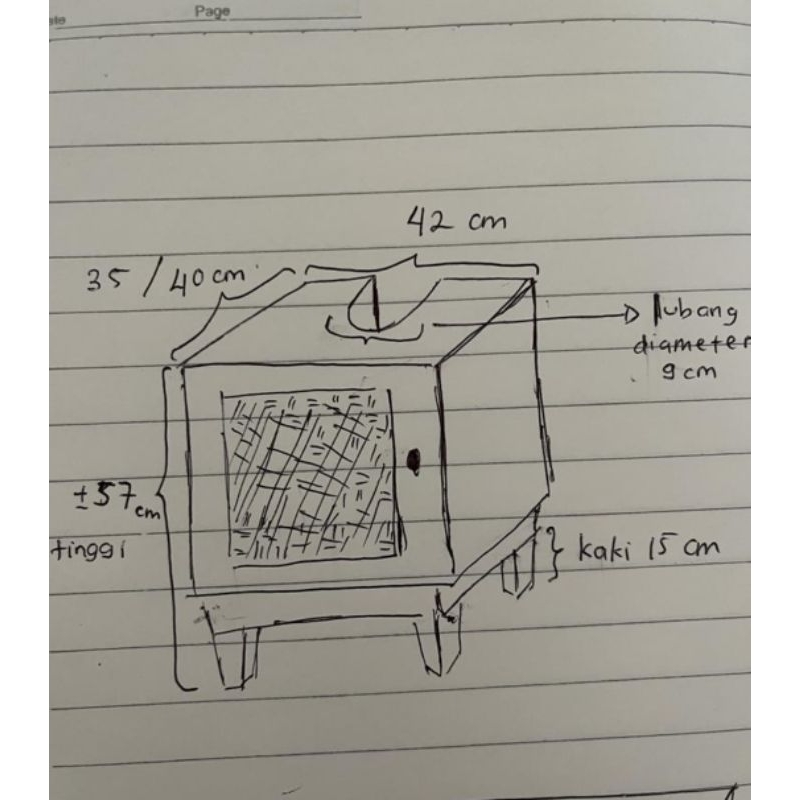 Page
42 cm
35 / 40 cm
lubang
diameter
9 cm
± 57 cm
tinggi
kaki 15 cm